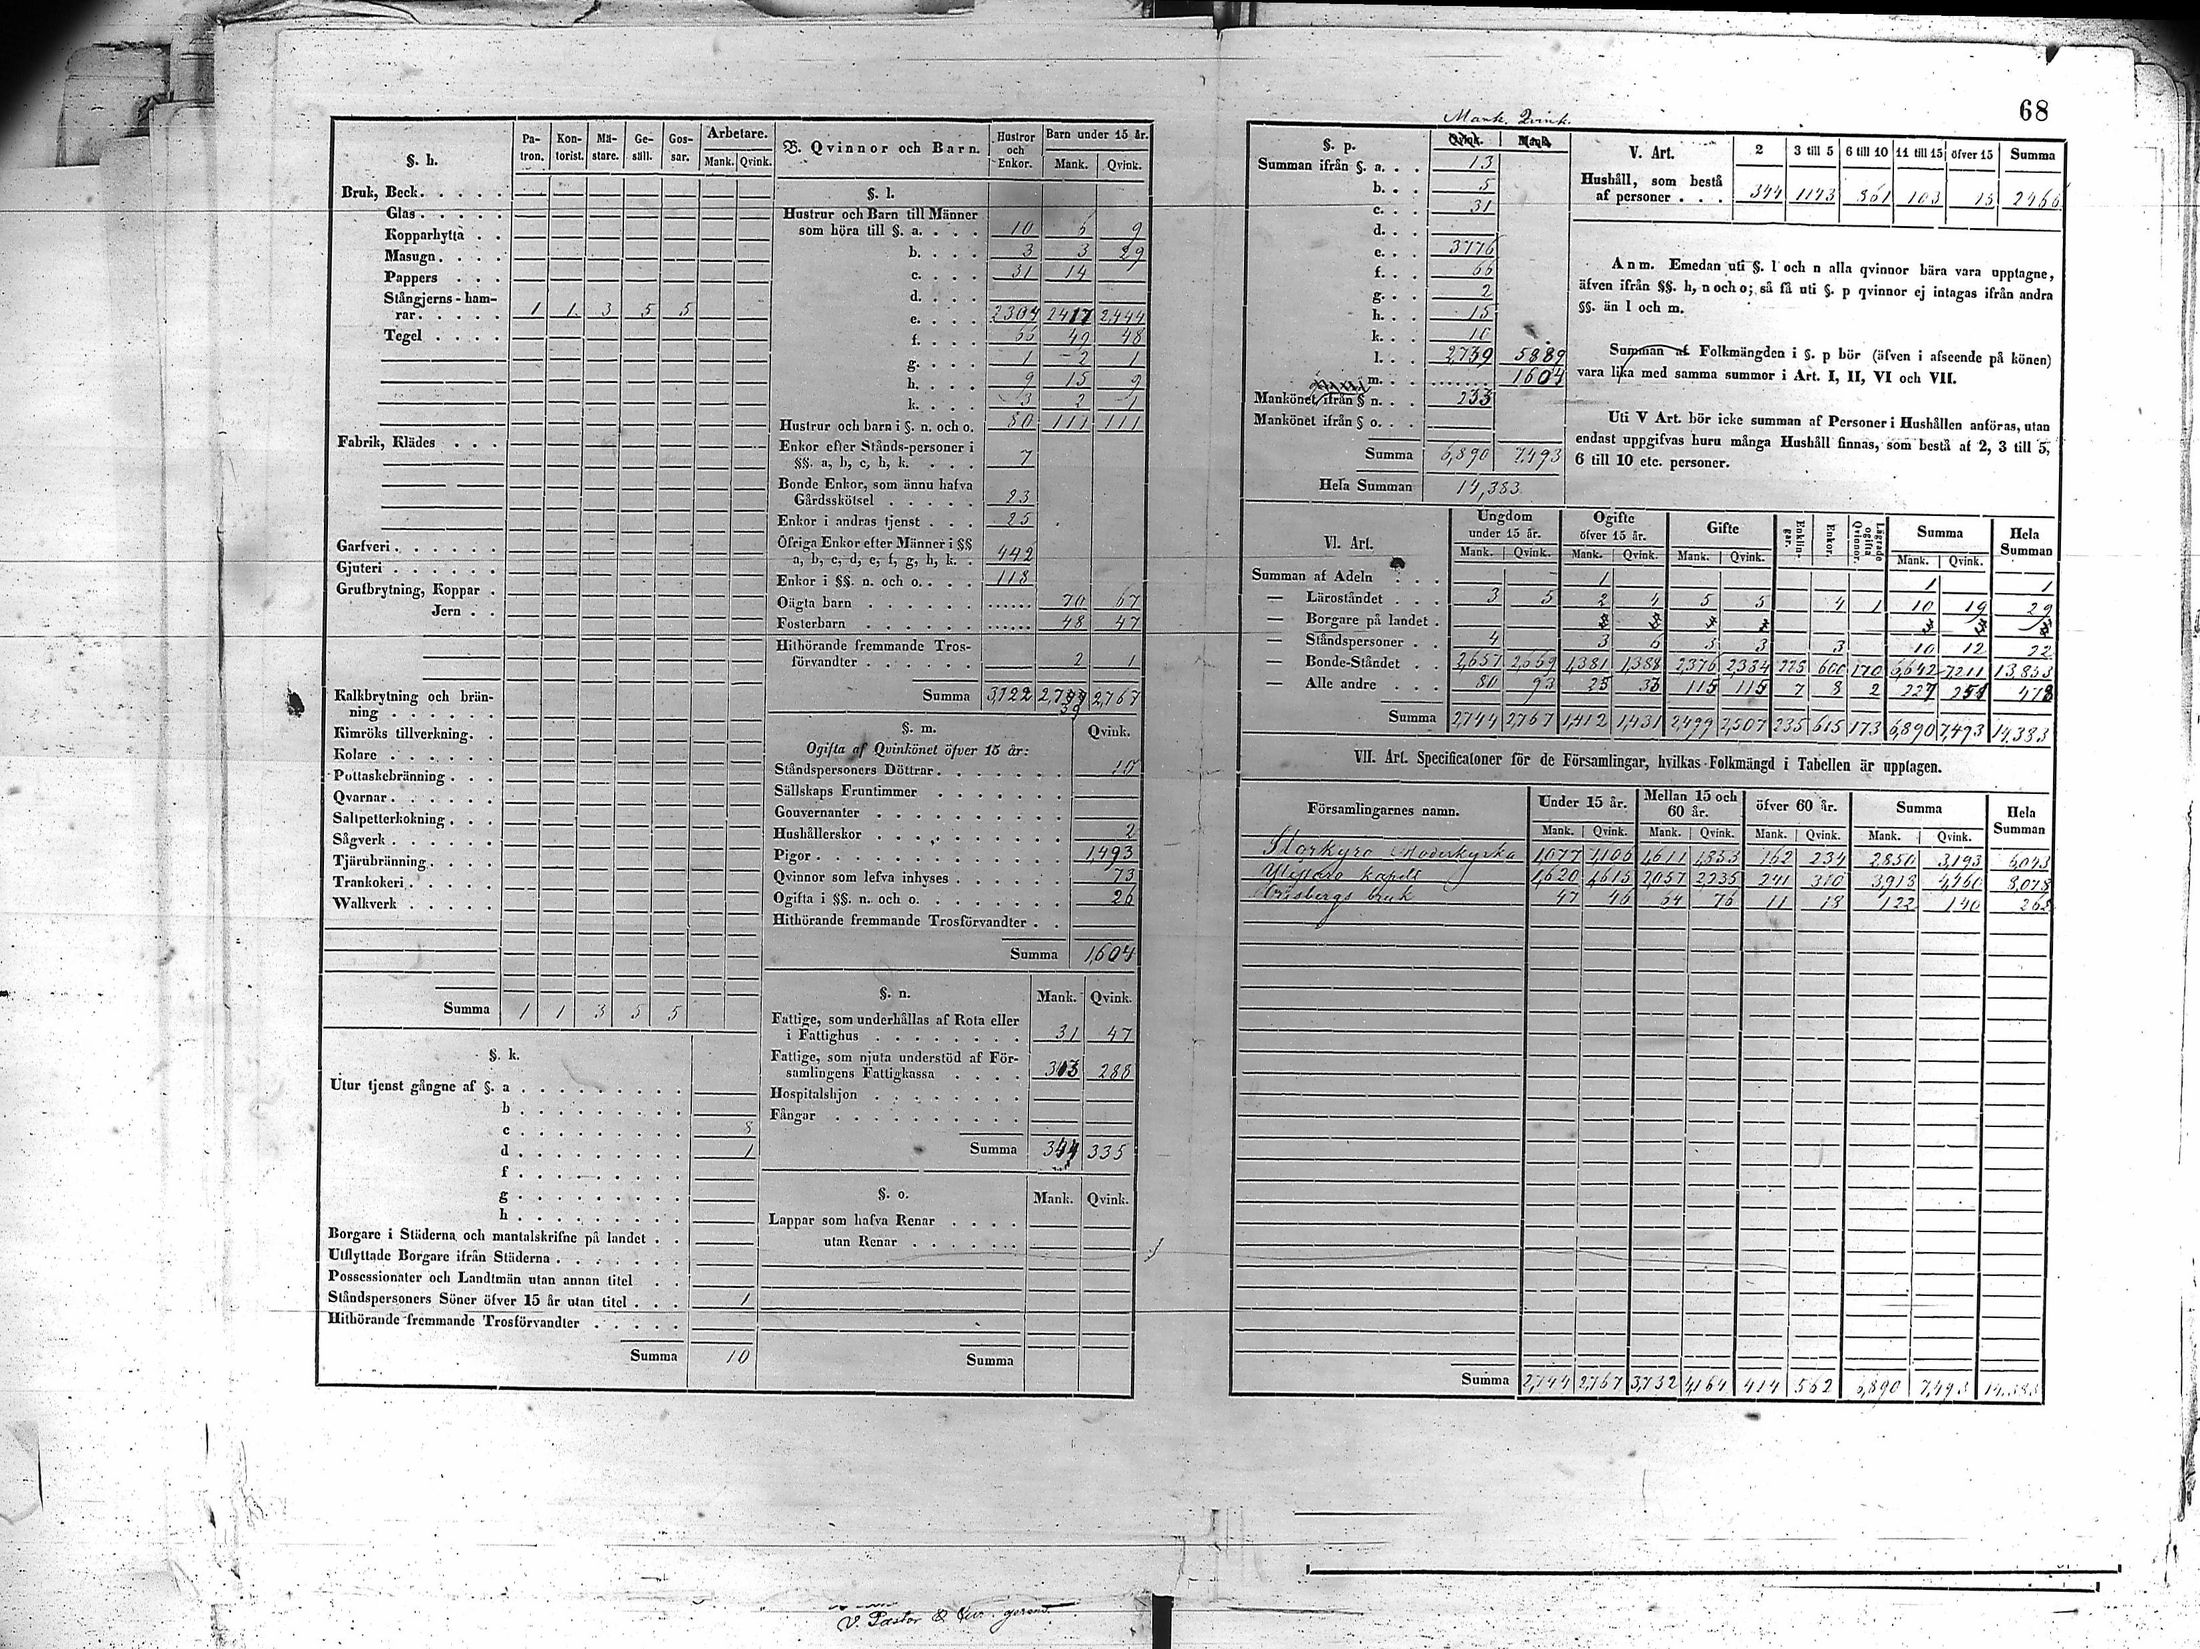 68
§. h. Pa-tron. Kon-torist. Mä-stare. Ge-säll. Gos-sar. Arbetare. Mank. Qvink.
Bruk, Beck
Glas
Kopparhytta
Masugn
Pappers
Stångjerns-ham-
rar 1 1 3 5 5
Tegel
Fabrik, Klädes
Garfveri
Gjuteri
Grufbrytning, Koppar
Jern
Kalkbrytning och brän-
ning
Kimröks tillverkning
Kolare
Pottaskebränning
Qvarnar
Saltpetterkokning
Sågverk
Tjärubränning
Trankokeri
Walkverk
Summa 1 1 3 5 5
§. k.
Utur tjenst gångne af §. a
b
c 8
d 1
f
g
h
Borgare i Städerna och mantalskrifne på landet
Utflyttade Borgare ifrån Städerna
Possessionater och Landtmän utan annan titel
Ståndspersoners Söner öfver 15 år utan titel 1
Hithörande fremmande Trosförvandter
Summa 10
B. Qvinnor och Barn. Hustror och Enkor. Barn under 15 år. Mank. Qvink.
§. l.
Hustrur och Barn till Männer
som höra till §. a. 10 6 9
b. 3 3 29
c. 31 14
d.
e. 2304 2417 2,444
f. 66 49 48
g. 1 2 1
h. 9 15 9
k. 3 2 1
Hustrur och barn i §. n. och o. 80 111 111
Enkor efter Stånds-personer i
§§. a, b, c, h, k. 7
Bonde Enkor, som ännu hafva
Gårdsskötsel 23
Enkor i andras tjenst 25
Öfriga Enkor efter Männer i §§
a, b, c, d, e, f, g, h, k. 442
Enkor i §§. n. och o. 118
Oägta barn 70 67
Fosterbarn 48 47
Hithörande fremmande Tros-
förvandter 2 1
Summa 3,122 2,767
§. m. Qvink.
Ogifta af Qvinkönet öfver 15 år:
Ståndspersoners Döttrar 10
Sällskaps Fruntimmer
Gouvernanter
Hushållerskor 2
Pigor 1,493
Qvinnor som lefva inhyses 73
Ogifta i §§. n. och o. 26
Hithörande fremmande Trosförvandter
Summa 1,604
§. n. Mank. Qvink.
Fattige, som underhållas af Rota eller
i Fattighus 31 47
Fattige, som njuta understöd af För-
samlingens Fattigkassa 313 288
Hospitalshjon
Fångar
Summa 344 335
§. o. Mank. Qvink.
Lappar som hafva Renar
utan Renar
Summa
Mank. Qvink.
§. p. Qvink. Mank.
Summan ifrån §. a. 13
b. 5
c. 31
d.
e. 3776
f. 66
g. 2
h. 15
k. 10
l. 2,739 5889
m. 1604
Mankönet ifrån § n. 233
Mankönet ifrån § o.
Summa 6,890 7,493
Hela Summan 14,383
V. Art. 2 3 till 5 6 till 10 11 till 15 öfver 15 Summa
Hushåll, som bestå
af personer 344 1143 861 103 15 2466
Anm. Emedan uti §. l och n alla qvinnor bära vara upptagne,
äfven ifrån §§. h, n och o; så få uti §. p qvinnor ej intagas ifrån andra
§§. än l och m.
Summan af Folkmängden i §. p bör (äfven i afseende på könen)
vara lika med samma summor i Art. I, II, VI och VII.
Uti V Art. bör icke summan af Personer i Hushållen anföras, utan
endast uppgifvas huru många Hushåll finnas, som bestå af 2, 3 till 5,
6 till 10 etc. personer.
VI. Art. Ungdom under 15 år. Ogifte öfver 15 år. Gifte Enklin-gar. Enkor. Lägrade ogifta Qvinnor. Summa Hela Summan
Mank. Qvink. Mank. Qvink. Mank. Qvink. Mank. Qvink.
Summan af Adeln 1 1 1
— Läroståndet 3 5 2 4 5 5 4 1 10 19 29
— Borgare på landet
— Ståndspersoner 4 3 6 3 3 3 10 12 22
— Bonde-Ståndet 2,657 2,669 1,381 1,388 2,376 2,384 228 600 170 6,642 7,211 13,853
— Alle andre 80 93 25 33 115 115 7 8 2 227 251 478
Summa 2,744 2,767 1,412 1,431 2,499 2,507 235 615 173 6,890 7,493 14,383
VII. Art. Specificatoner för de Församlingar, hvilkas Folkmängd i Tabellen är upptagen.
Församlingarnes namn. Under 15 år. Mellan 15 och 60 år. öfver 60 år. Summa Hela Summan
Mank. Qvink. Mank. Qvink. Mank. Qvink. Mank. Qvink.
Storkyro Moderkyrka 1,077 1,106 1,611 1,853 162 234 2,850 3,193 6,043
kapell 1,620 1,615 2,057 2,235 241 310 3,918 4,160 8,078
Orisbergs bruk 47 46 64 76 11 18 122 140 262
Summa 2,744 2,767 3,732 4,164 414 562 6,890 7,493 14,383
V. Pastor